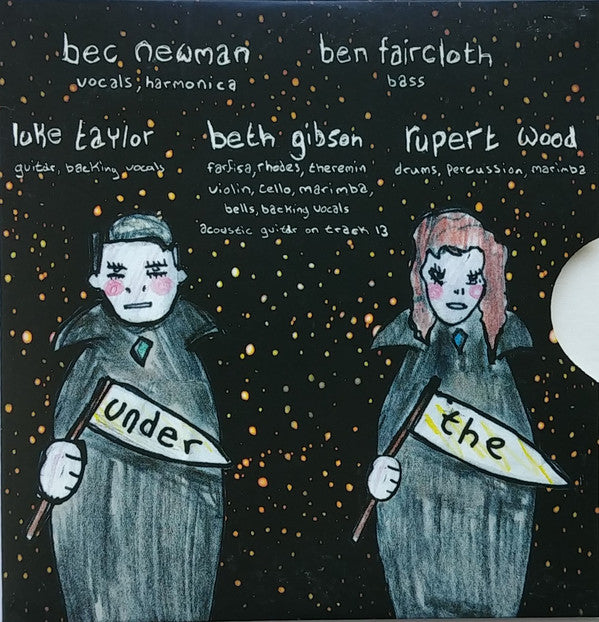 bec newman
vocals, harmonica
ben faircloth
bass
luke taylor
guitar, backing vocals
beth gibson
farfisa, rhodes, theremin
violin, cello, marimba,
bells, backing vocals
acoustic guitar on track 13
rupert wood
drums, percussion, marimba
under
the